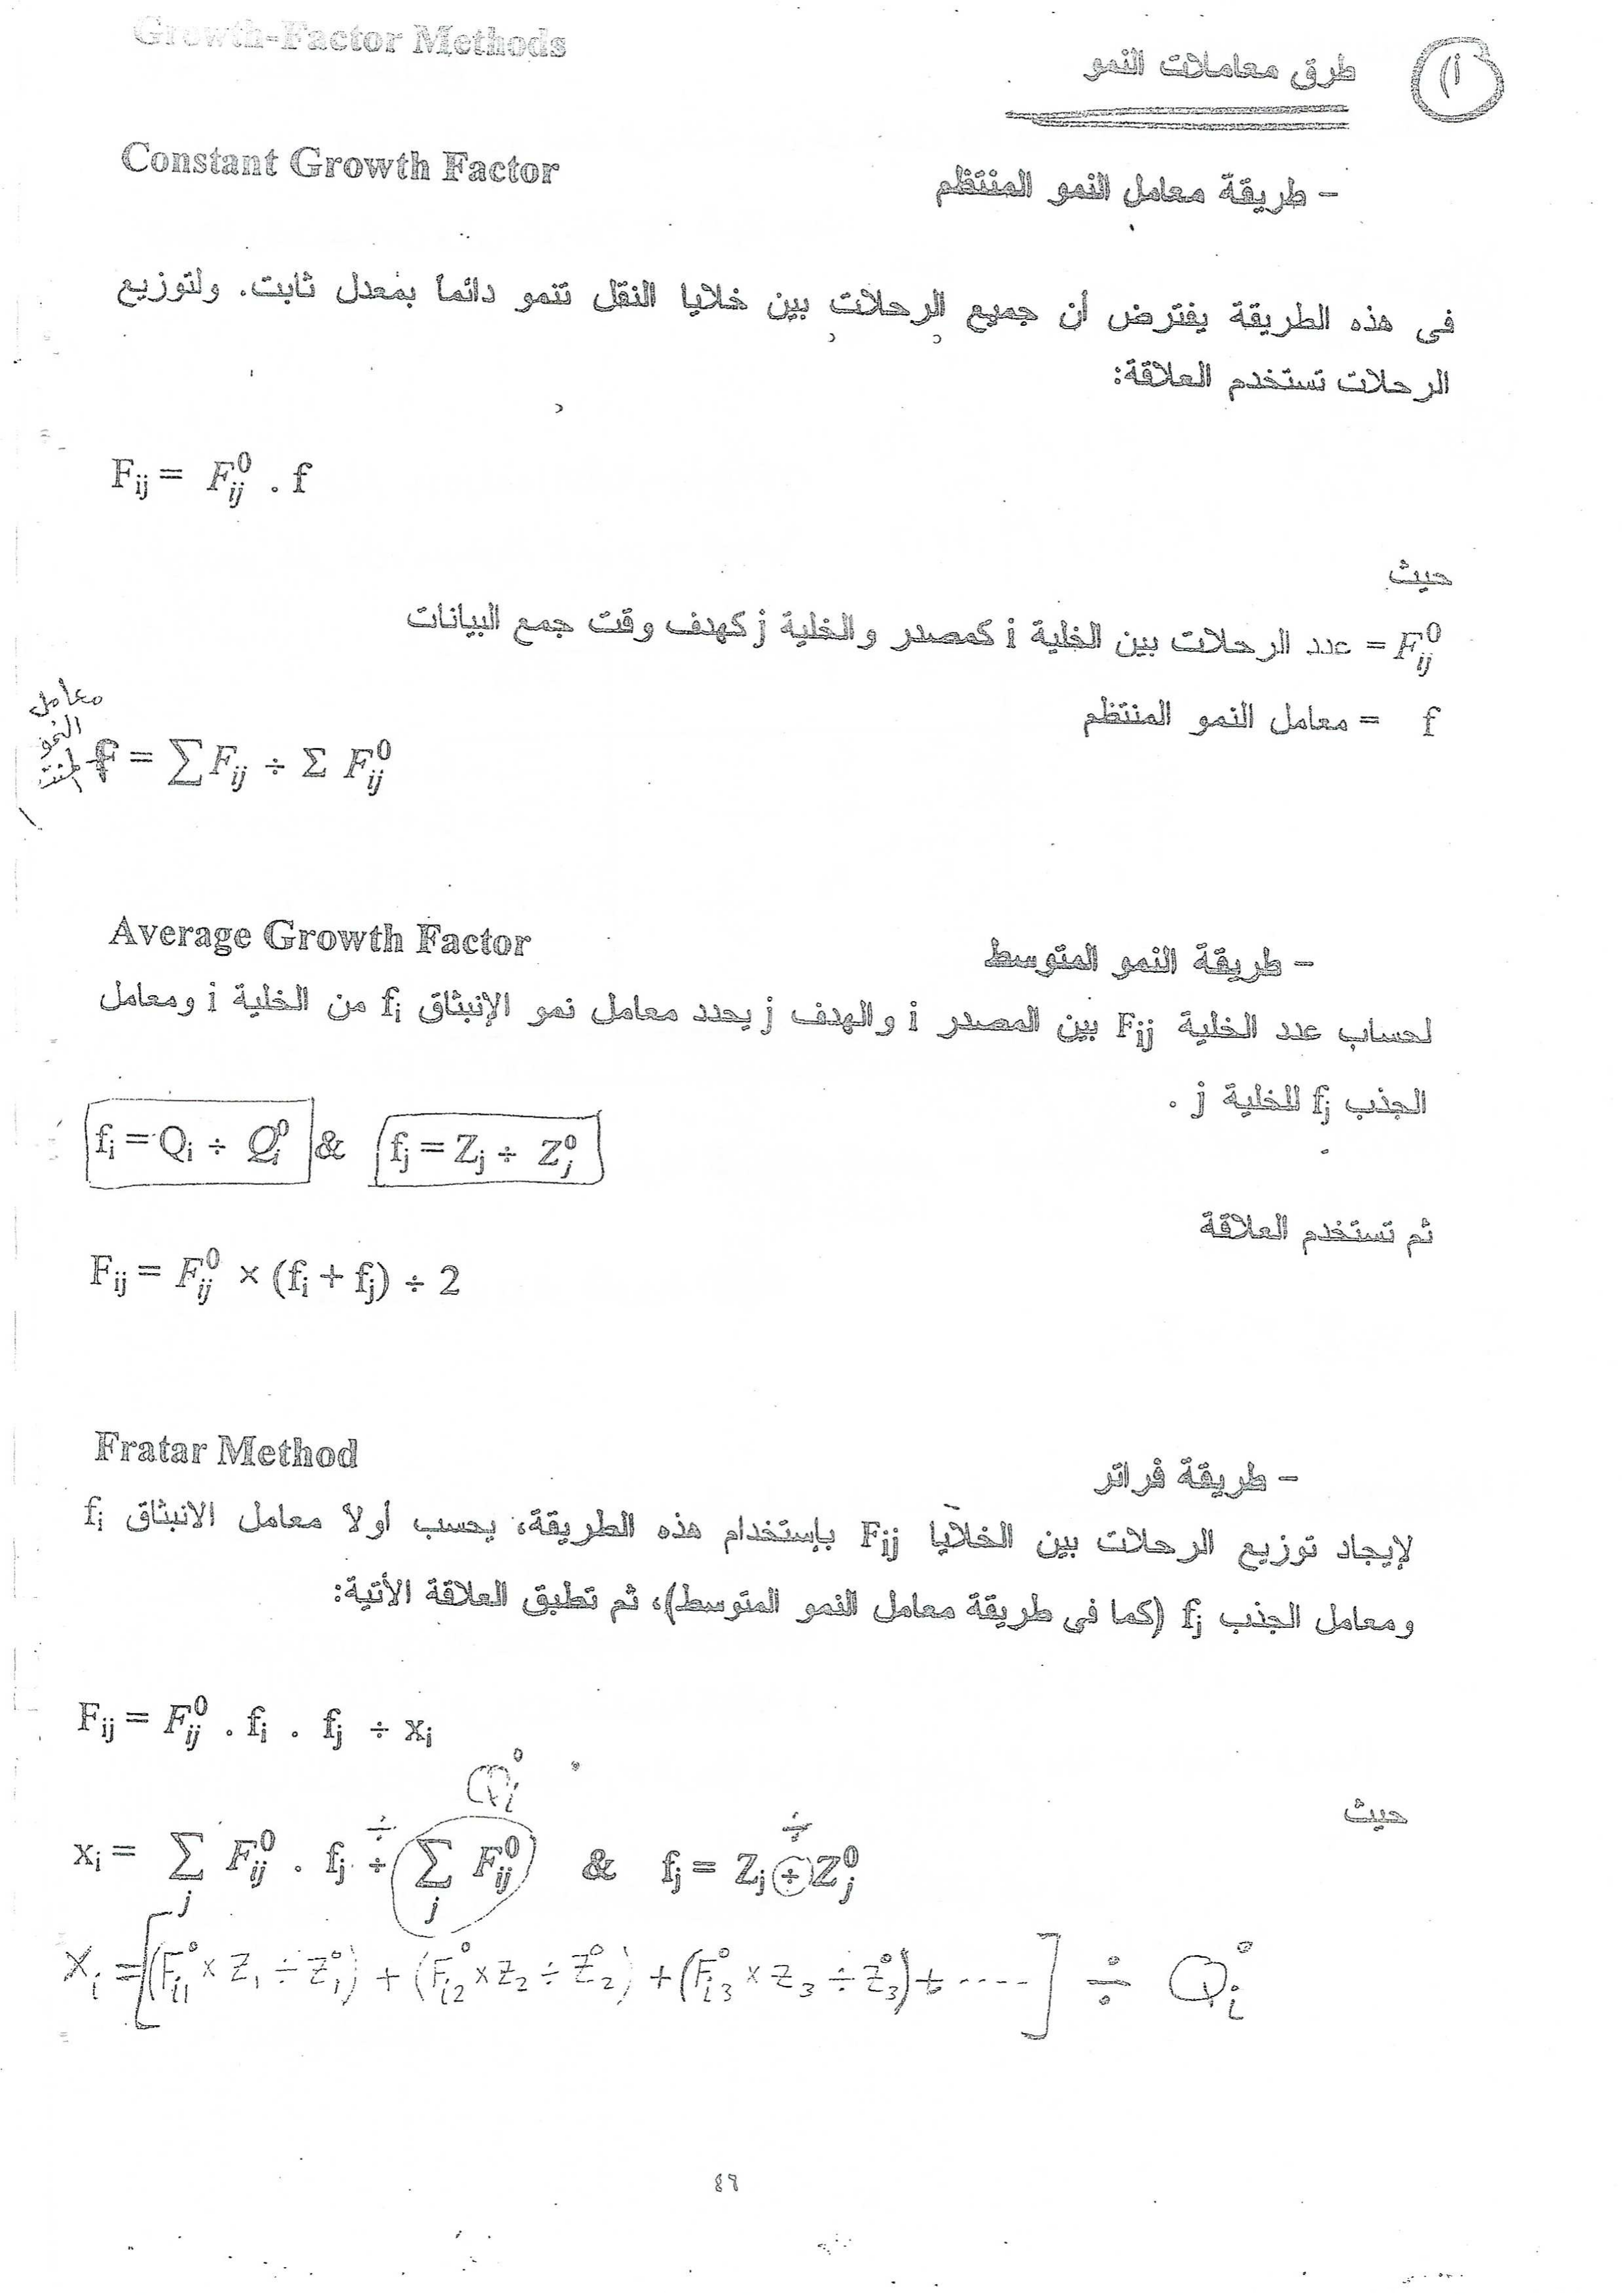 Growth-Factor Methods
طرق معاملات النمو
Constant Growth Factor
- طريقة معامل النمو المنتظم
فى هذه الطريقة يفترض أن جميع الرحلات بين خلايا النقل تنمو دائماً بمعدل ثابت. ولتوزيع
الرحلات تستخدم العلاقة:
F_ij = F_ij^0 . f
حيث
F_ij^0 = عدد الرحلات بين الخلية i كمصدر والخلية j كهدف وقت جمع البيانات
f = معامل النمو المنتظم
معامل
النمو
f = ∑ F_ij ÷ Σ F_ij^0
Average Growth Factor
- طريقة النمو المتوسط
لحساب عدد الخلية F_ij بين المصدر i والهدف j يحدد معامل نمو الإنبثاق f_i من الخلية i ومعامل
الجذب f_j للخلية j .
f_i = Q_i ÷ Q_i^0 & f_j = Z_j ÷ Z_j^0
ثم تستخدم العلاقة
F_ij = F_ij^0 × (f_i + f_j) ÷ 2
Fratar Method
- طريقة فراتر
لإيجاد توزيع الرحلات بين الخلايا F_ij بإستخدام هذه الطريقة، يحسب أولاً معامل الانبثاق f_i
ومعامل الجذب f_j (كما فى طريقة معامل النمو المتوسط)، ثم تطبق العلاقة الأتية:
F_ij = F_ij^0 . f_i . f_j ÷ x_i
حيث
Q_i^0
÷ ÷
x_i = ∑_j F_ij^0 . f_j ÷ ∑_j F_ij^0 & f_j = Z_j ÷ Z_j^0
X_i = [(F_i1^0 × Z_1 ÷ Z_1^0) + (F_i2^0 × Z_2 ÷ Z_2^0) + (F_i3^0 × Z_3 ÷ Z_3^0) + ----] ÷ Q_i^0
٤٦